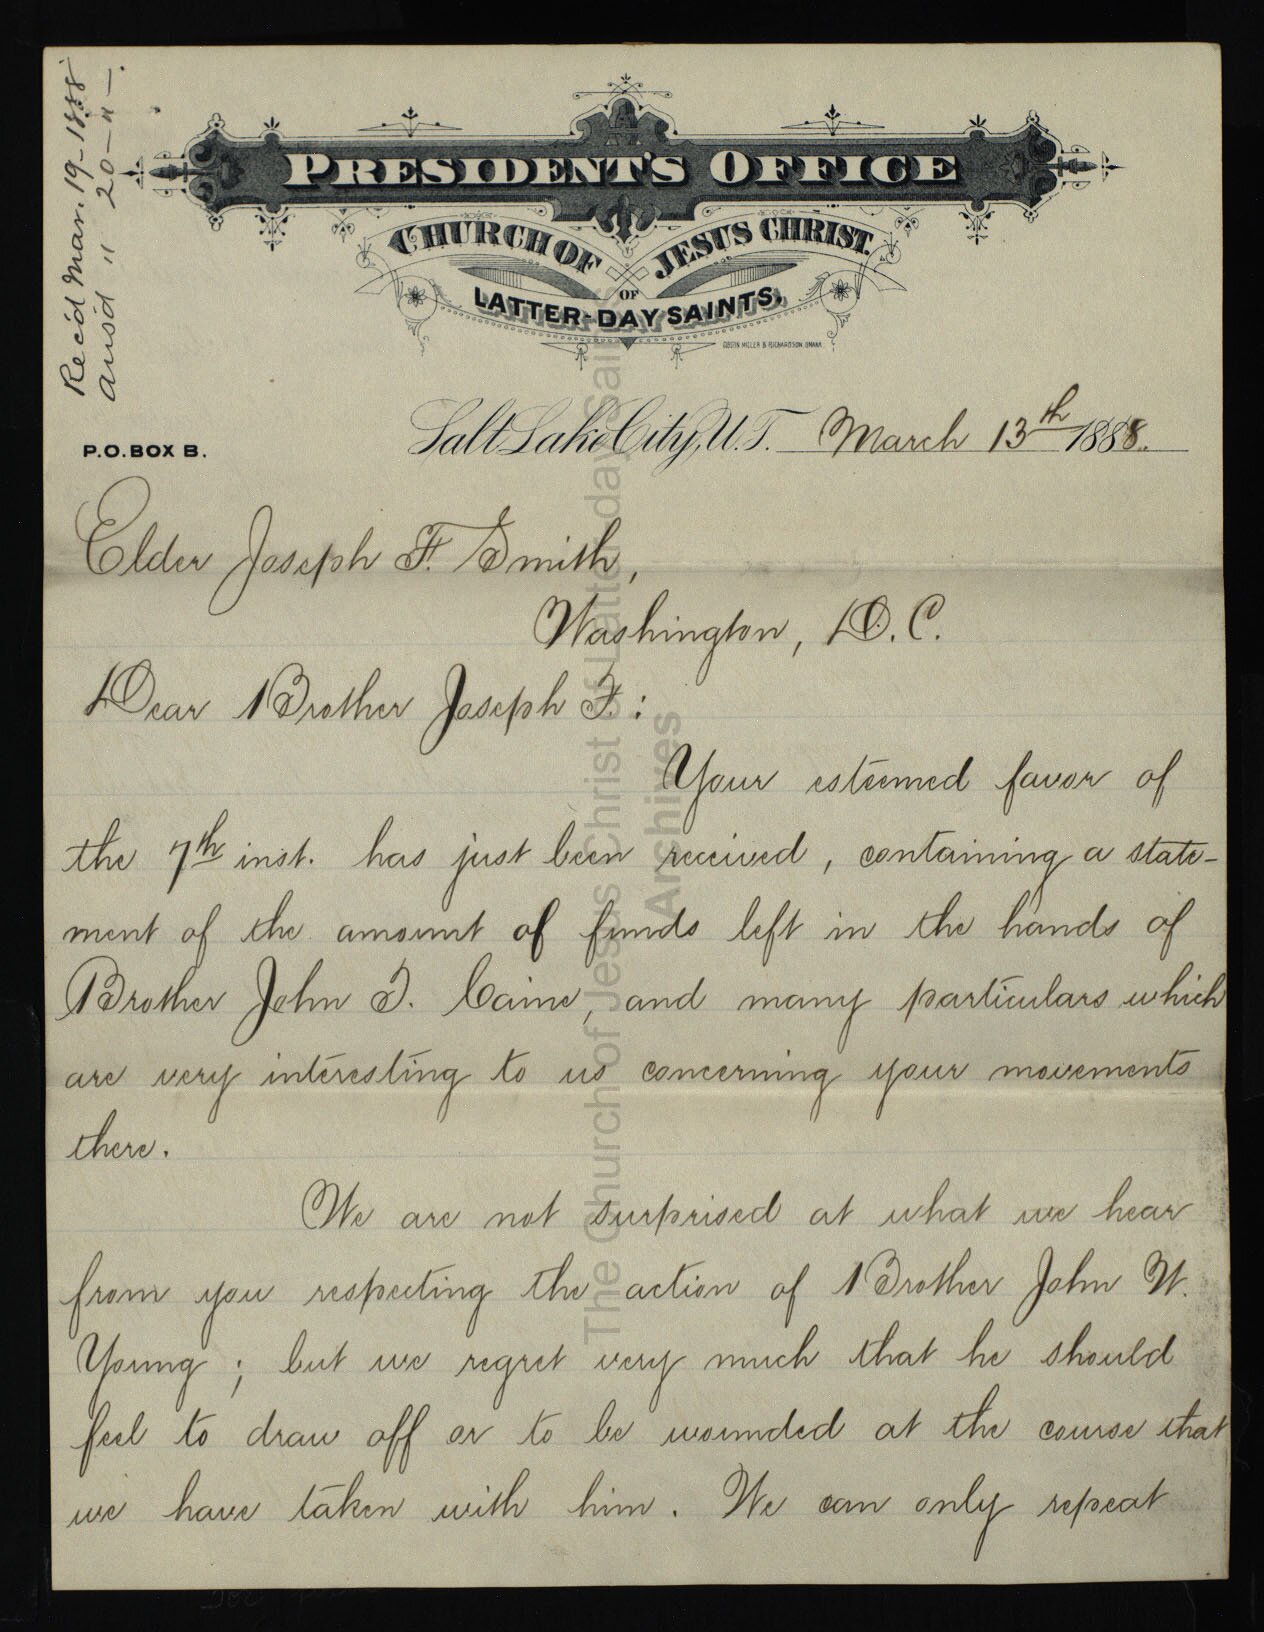 Rec'd Mar. 19-1888
ans'd " 20-"-.
PRESIDENT'S OFFICE
CHURCH OF JESUS CHRIST
OF
LATTER-DAY SAINTS.
P.O. BOX B.
Salt Lake City, U.T. March 13th 1888.
Elder Joseph F. Smith,
Washington, D.C.
Dear Brother Joseph F.:
Your esteemed favor of
the 7th inst. has just been received, containing a state-
ment of the amount of funds left in the hands of
Brother John T. Caine, and many particulars which
are very interesting to us concerning your movements
there.
We are not surprised at what we hear
from you respecting the action of Brother John W.
Young; but we regret very much that he should
feel to draw off or to be wounded at the course that
we have taken with him. We can only repeat
The Church of Jesus Christ of Latter-day Saints
Archives